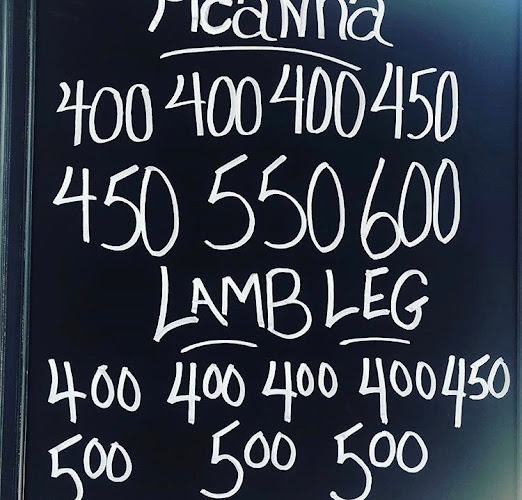 Picanha
400 400 400 450
450 550 600
LAMB LEG
400 400 400 400 450
500 500 500